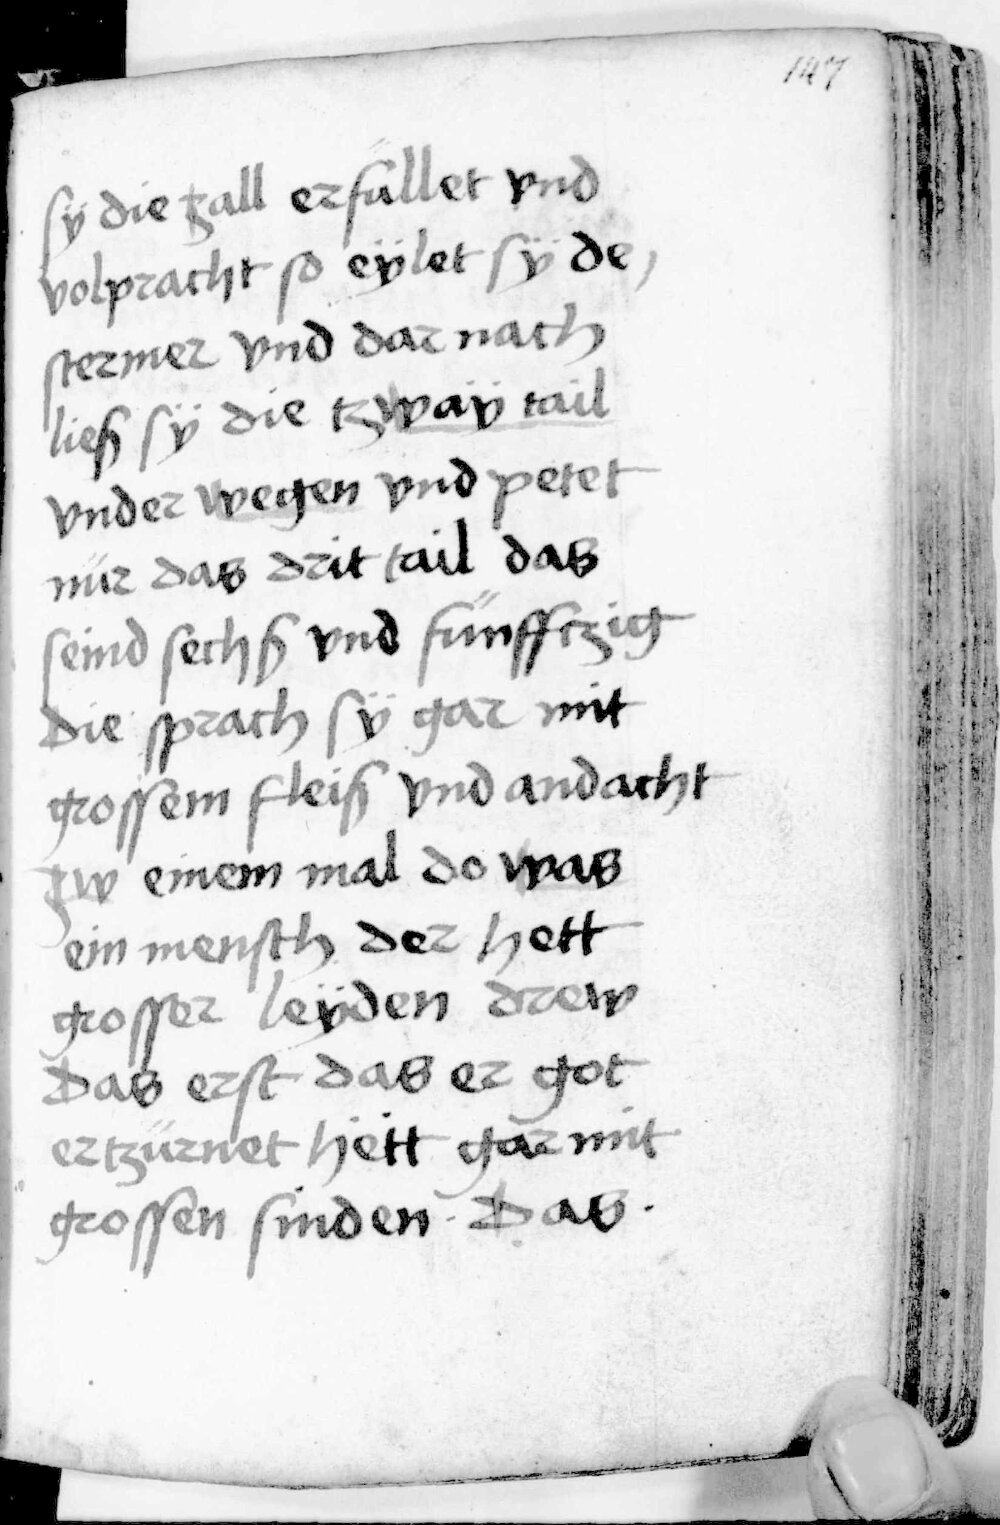 147
sÿ die zall erfüllet vnd
volpracht so eÿlet sÿ de,
stermer vnd dar nach
ließ sÿ die tzwaÿ tail
vnder wegen vnd petet
nür das drit tail das
seind sechß vnd fünfftzig
Die sprach sÿ gar mit
grossem fleiß vnd andacht
zw einem mal do was
ein mensch der hett
grosser leÿden drew
Das erst das er got
ertzürnet hett gar mit
grossen sinden · Das ·